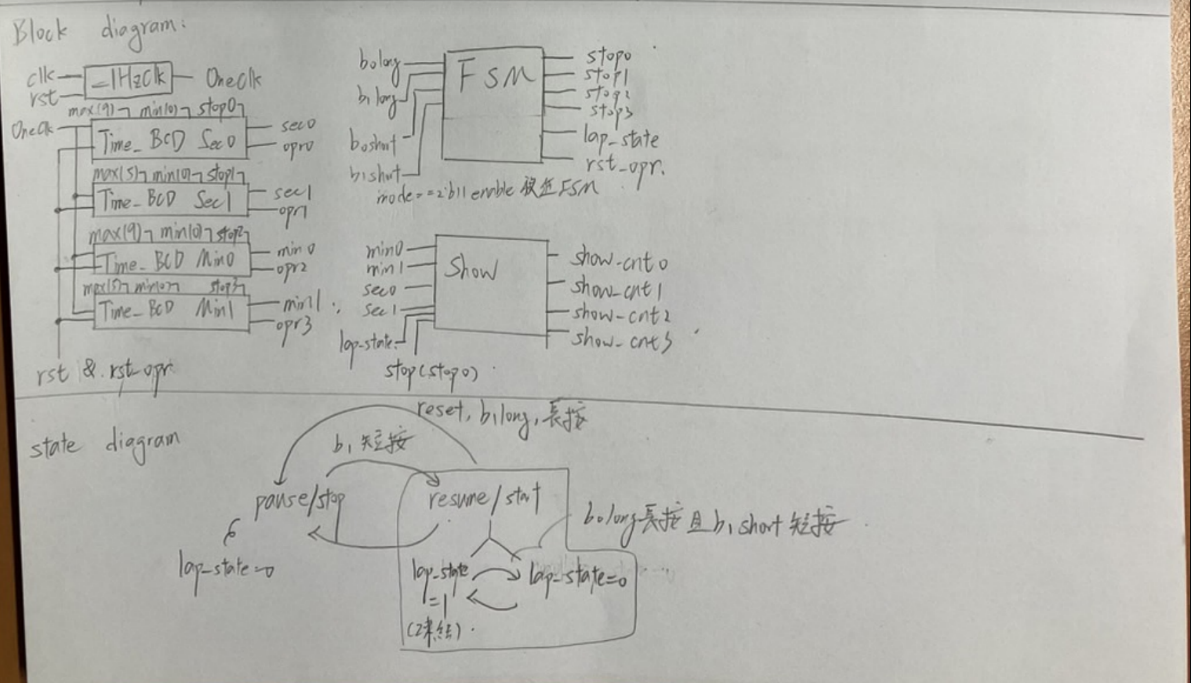 Block diagram:
clk
rst
1HzClk
OneClk
max(9) min(0) stop0
OneClk
Time_BCD Sec0
sec0
opr0
max(5) min(0) stop1
Time_BCD Sec1
sec1
opr1
max(9) min(0) stop2
Time_BCD Min0
min0
opr2
max(5) min(0) stop3
Time_BCD Min1
min1
opr3
rst & rst_opr
b0long
b1long
b0short
b1short
FSM
stop0
stop1
stop2
stop3
lap_state
rst_opr.
mode==2'b11 enable FSM
min0
min1
sec0
sec1
lap_state
stop(stop0)
Show
show_cnt0
show_cnt1
show_cnt2
show_cnt3
state diagram
reset, b1long, 長按
b1 短按
pause/stop
resume/start
lap_state=0
b0long長按且b1short短按
lap_state
=1
lap_state=0